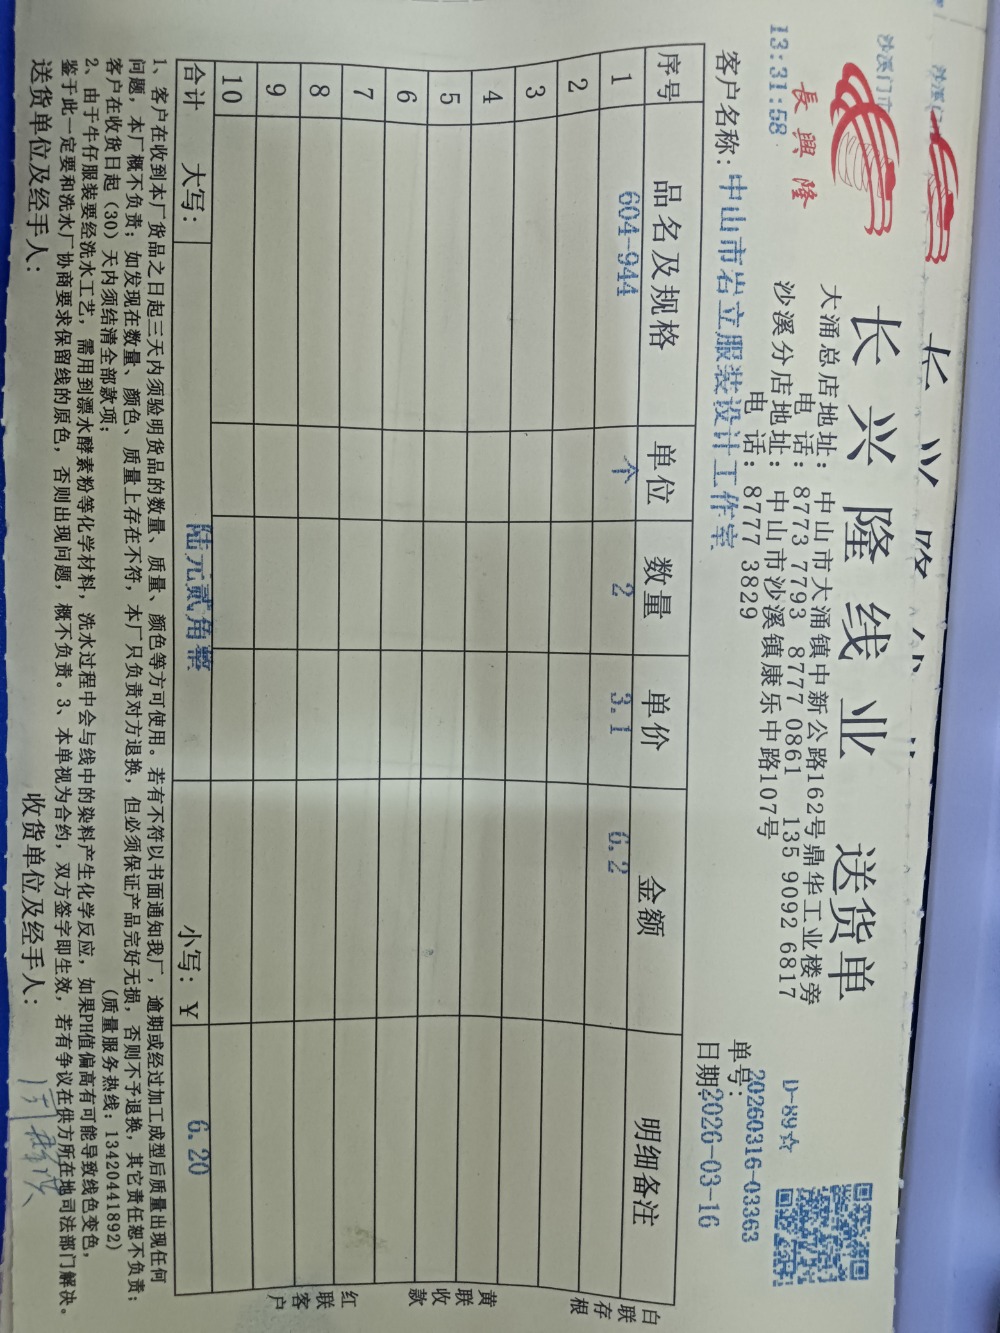 沙溪门市
13:31:58
長興隆
长兴隆线业 送货单
大涌总店地址：中山市大涌镇中新公路162号鼎华工业楼旁
电话：8773 7793 8777 0861 135 9092 6817
沙溪分店地址：中山市沙溪镇康乐中路107号
电话：8777 3829
D-89☆
单号：20260316-03363
客户名称：中山市岩立服装设计工作室
日期：2026-03-16
序号 品名及规格 单位 数量 单价 金额 明细备注
1 604-944 个 2 3.1 6.2
2
3
4
5
6
7
8
9
10
合计 大写： 陆元贰角整 小写：¥ 6.20
白联存根
黄联收款
红联客户
1、客户在收到本厂货品之日起三天内须验明货品的数量、质量、颜色等方可使用。若有不符以书面通知我厂，逾期或经过加工成型后质量出现任何
问题，本厂概不负责；如发现在数量、颜色、质量上存在不符，本厂只负责对方退换，但必须保证产品完好无损，否则不予退换，其它责任恕不负责；
客户在收货日起（30）天内须结清全部款项； (质量服务热线：13420441892)
2、由于牛仔服装要经洗水工艺，需用到漂水酵素粉等化学材料，洗水过程中会与线中的染料产生化学反应，如果PH值偏高有可能导致线色变色，
鉴于此一定要和洗水厂协商要求保留线的原色，否则出现问题，概不负责。3、本单视为合约，双方签字即生效，若有争议在供方所在地司法部门解决。
送货单位及经手人： 收货单位及经手人：